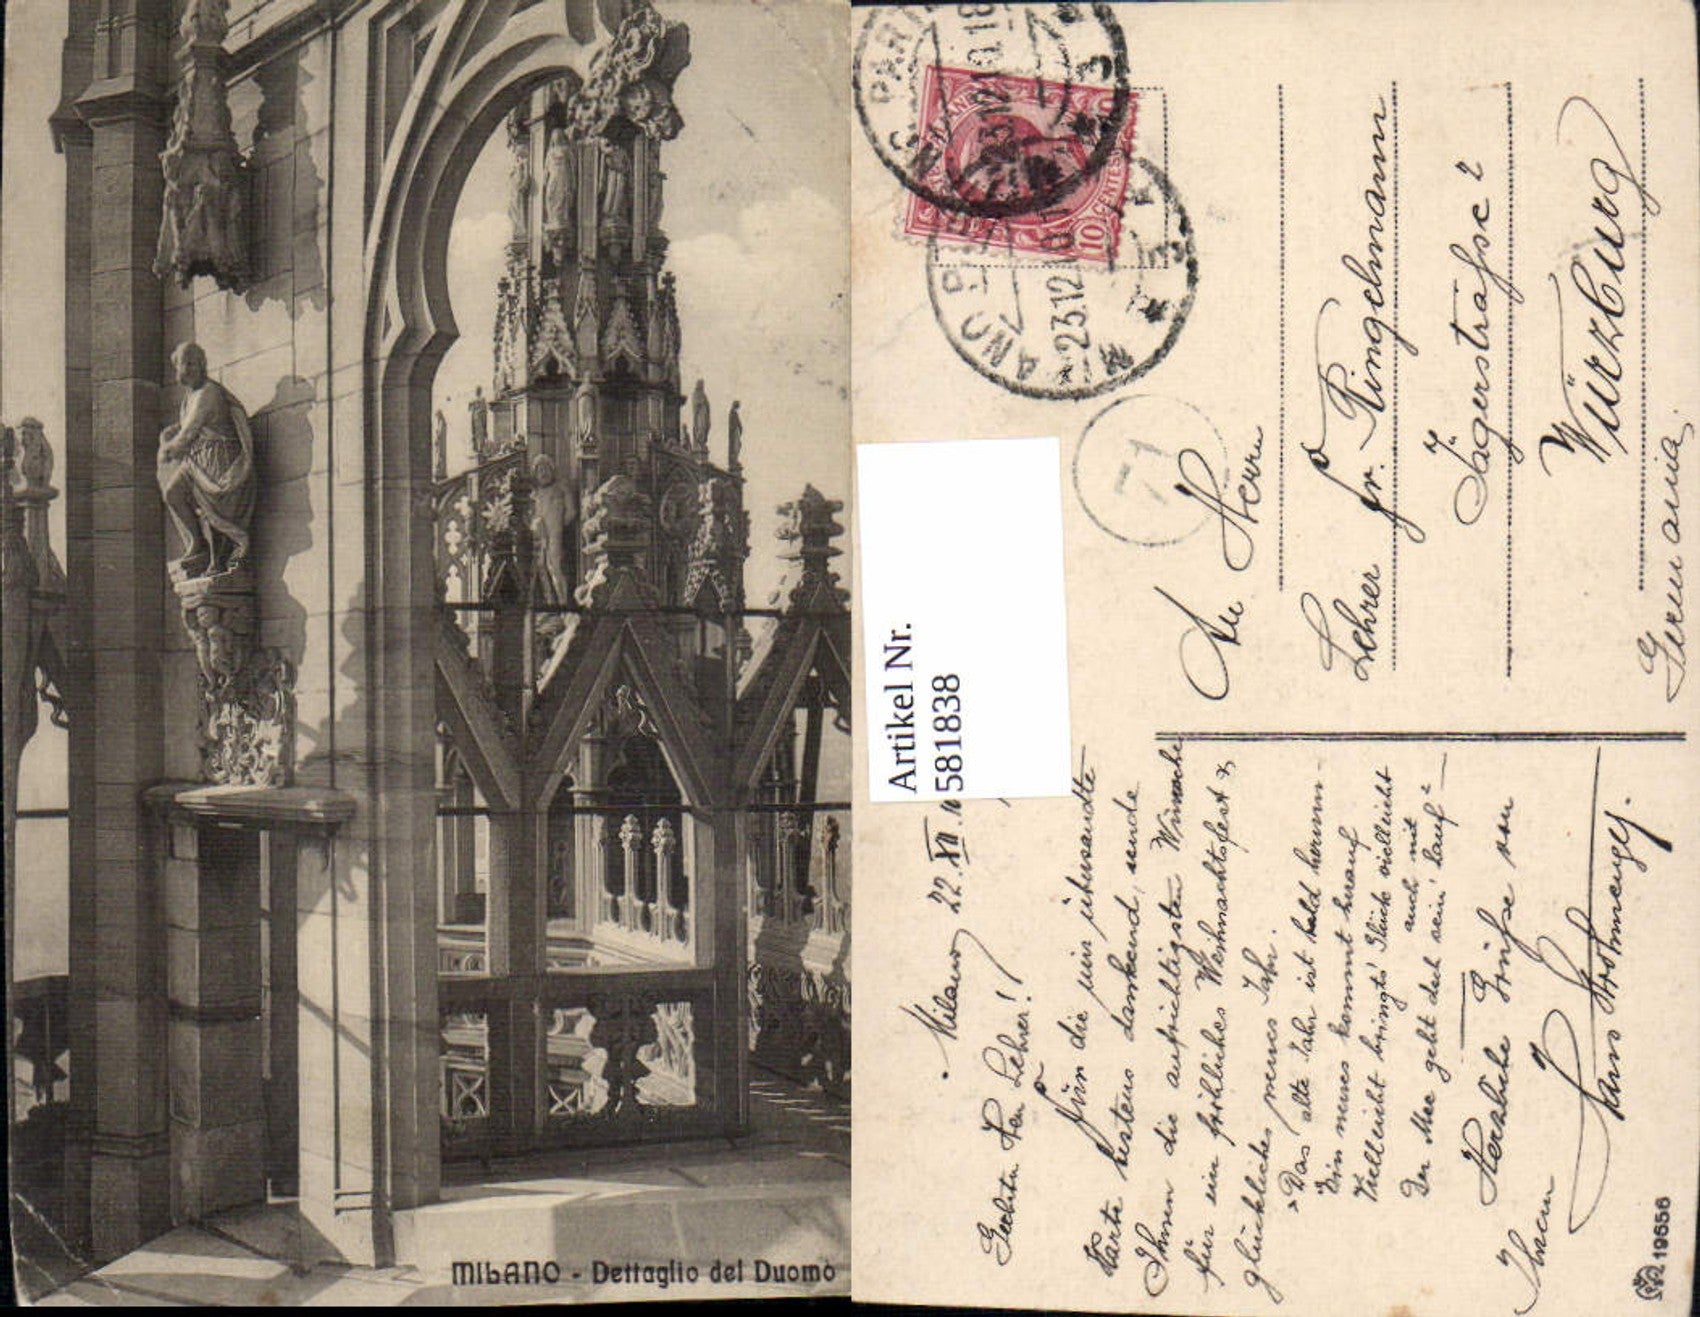 MILANO - Dettaglio del Duomo
MILANO PARTENZA
23.12.10.18
MILANO PARTENZA
23.12.10
10 CENTESIMI
71
Artikel Nr.
5818838
An Herrn
Lehrer Fr. Ringelmann
Jägerstrasse 2
Würzburg
Germania
Milano, 22. XII.
Geehrter Herr Lehrer!
Für die mir übersandte
Karte bestens dankend, sende
Ihnen die aufrichtigsten Wünsche
für ein fröhliches Weihnachtsfest &
glückliches neues Jahr.
"Das alte Jahr ist bald herum -
Ein neues kommt herauf
Vielleicht bringts' Glück vielleicht
auch mit
Der geht doch sein' Lauf" -
Herzliche Grüße von
Ihrem
Hans
19656